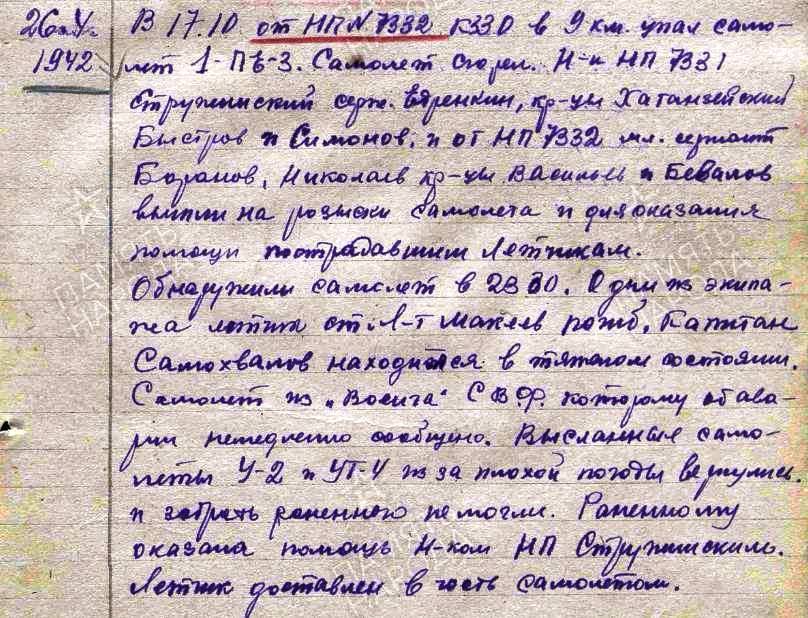 26.X.
1942
В 17.10 от НП №7332 К330 в 9 км. упал само-
лет 1-ПЕ-3. Самолет сгорел. Н-к НП 7331
Стружинский серж. Веренкин, кр-цы Хатанзейский
Быстров и Симонов, и от НП 7332 мл. сержант
Баранов, Николаев кр-цы Васильев и Бевалов
вышли на розыски самолета и для оказания
помощи пострадавшим летчикам.
Обнаружили самолет в 23 30. Один из экипа-
жа летчик ст. л-т Макеев погиб, Капитан
Самохвалов находится в тяжелом состоянии.
Самолет из "Военга" С.В.Ф. которому об ава-
рии немедленно сообщено. Высланные само-
леты У-2 и УТ-4 из за плохой погоды вернулись.
и забрать раненного не могли. Раненному
оказана помощь Н-ком НП Стружинским.
Летчик доставлен в часть самолетом.
ПАМЯТЬ НАРОДА